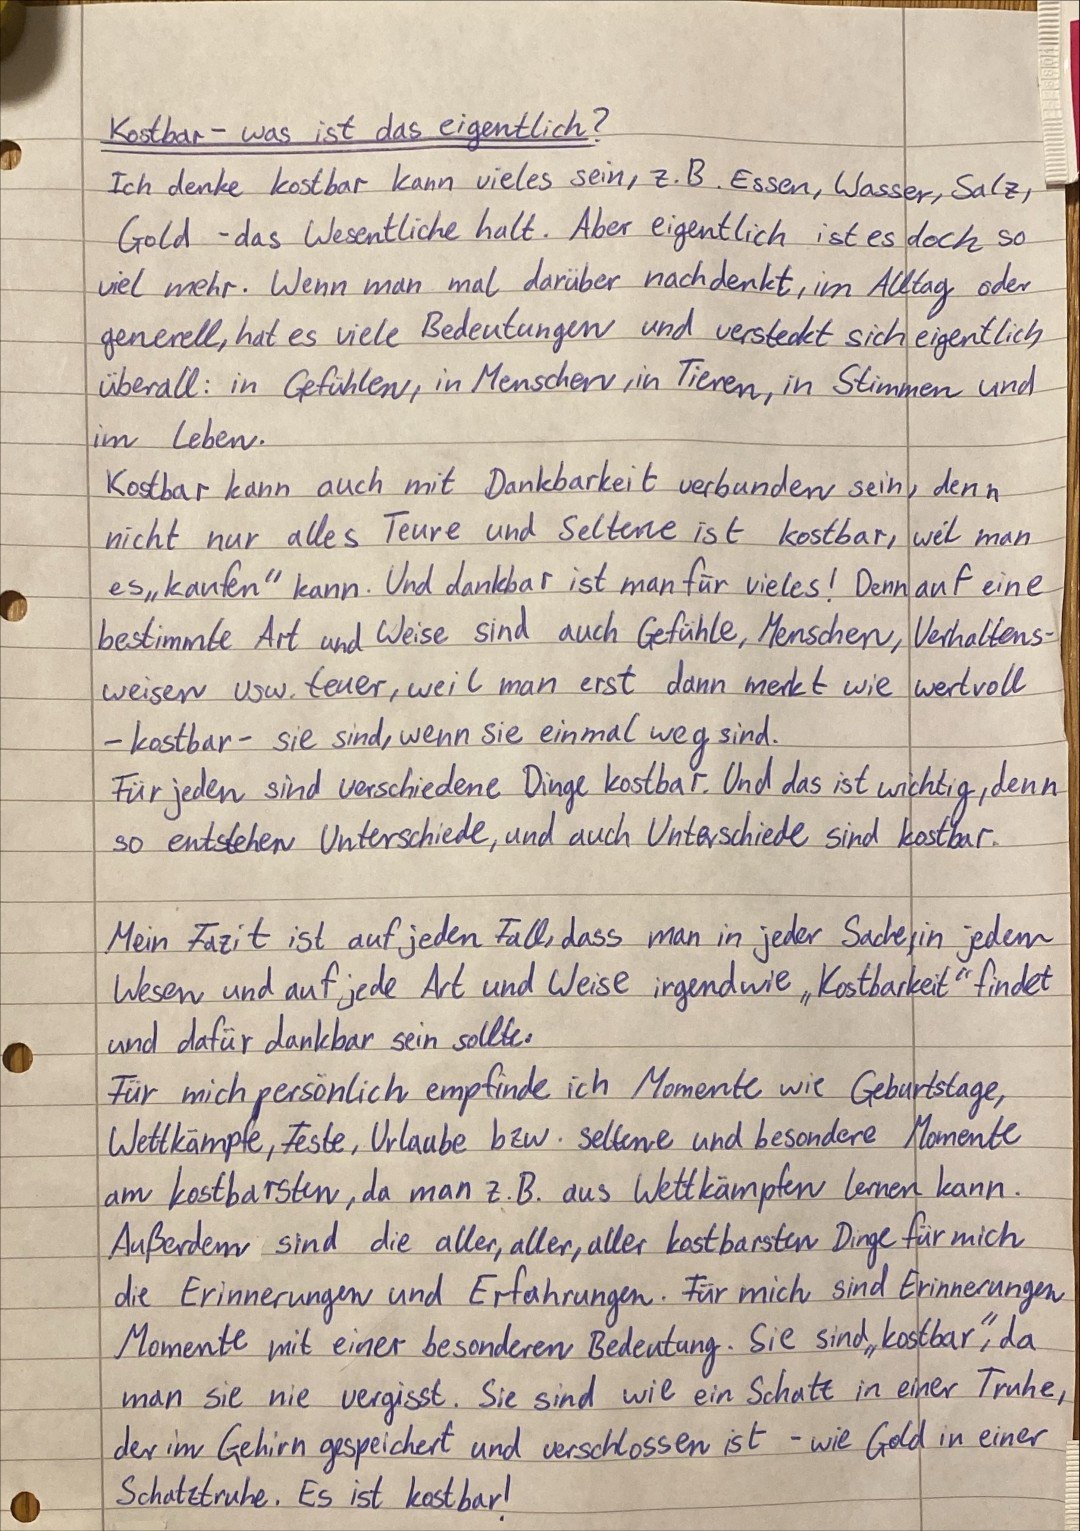 Kostbar - was ist das eigentlich?
Ich denke kostbar kann vieles sein, z.B. Essen, Wasser, Salz,
Gold - das Wesentliche halt. Aber eigentlich ist es doch so
viel mehr. Wenn man mal darüber nachdenkt, im Alltag oder
generell, hat es viele Bedeutungen und versteckt sich eigentlich
überall: in Gefühlen, in Menschen, in Tieren, in Stimmen und
im Leben.
Kostbar kann auch mit Dankbarkeit verbunden sein, denn
nicht nur alles Teure und Seltene ist kostbar, weil man
es „kaufen“ kann. Und dankbar ist man für vieles! Denn auf eine
bestimmte Art und Weise sind auch Gefühle, Menschen, Verhaltens-
weisen usw. teuer, weil man erst dann merkt wie wertvoll
- kostbar - sie sind, wenn sie einmal weg sind.
Für jeden sind verschiedene Dinge kostbar. Und das ist wichtig, denn
so entstehen Unterschiede, und auch Unterschiede sind kostbar.
Mein Fazit ist auf jeden Fall, dass man in jeder Sache, in jedem
Wesen und auf jede Art und Weise irgendwie „Kostbarkeit“ findet
und dafür dankbar sein sollte.
Für mich persönlich empfinde ich Momente wie Geburtstage,
Wettkämpfe, Feste, Urlaube bzw. seltene und besondere Momente
am kostbarsten, da man z.B. aus Wettkämpfen lernen kann.
Außerdem sind die aller, aller, aller kostbarsten Dinge für mich
die Erinnerungen und Erfahrungen. Für mich sind Erinnerungen
Momente mit einer besonderen Bedeutung. Sie sind „kostbar“, da
man sie nie vergisst. Sie sind wie ein Schatz in einer Truhe,
der im Gehirn gespeichert und verschlossen ist - wie Gold in einer
Schatztruhe. Es ist kostbar!